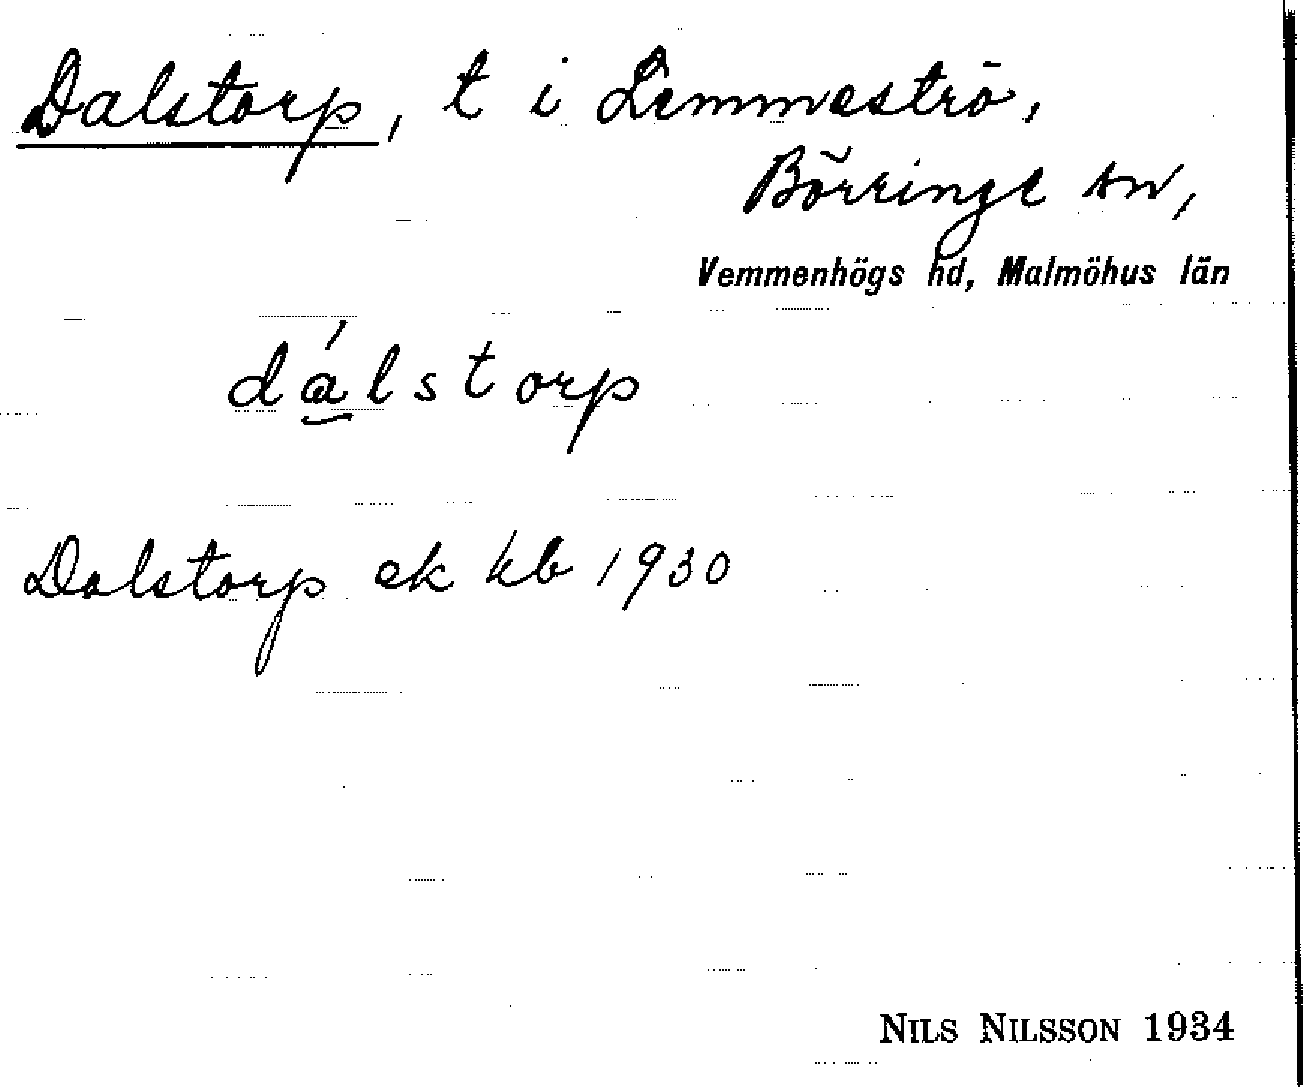 Dalstorp, t i Lemmeströ,
Börringe sn,
Vemmenhögs hd, Malmöhus län
dálstorp
Dalstorp ek kb 1930
NILS NILSSON 1934